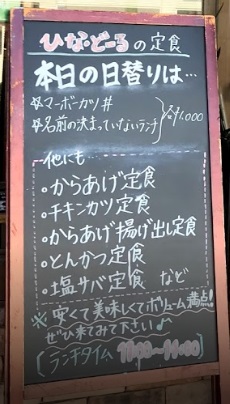 ひなどーるの定食
本日の日替りは…
☆マーボーカツ丼
☆名前の決まっていないランチ
¥1,000
他にも…
・からあげ定食
・チキンカツ定食
・からあげ揚げ出し定食
・とんかつ定食
・塩サバ定食 など
※安くて美味しくてボリューム満点!
ぜひ来てみて下さい♪
ランチタイム